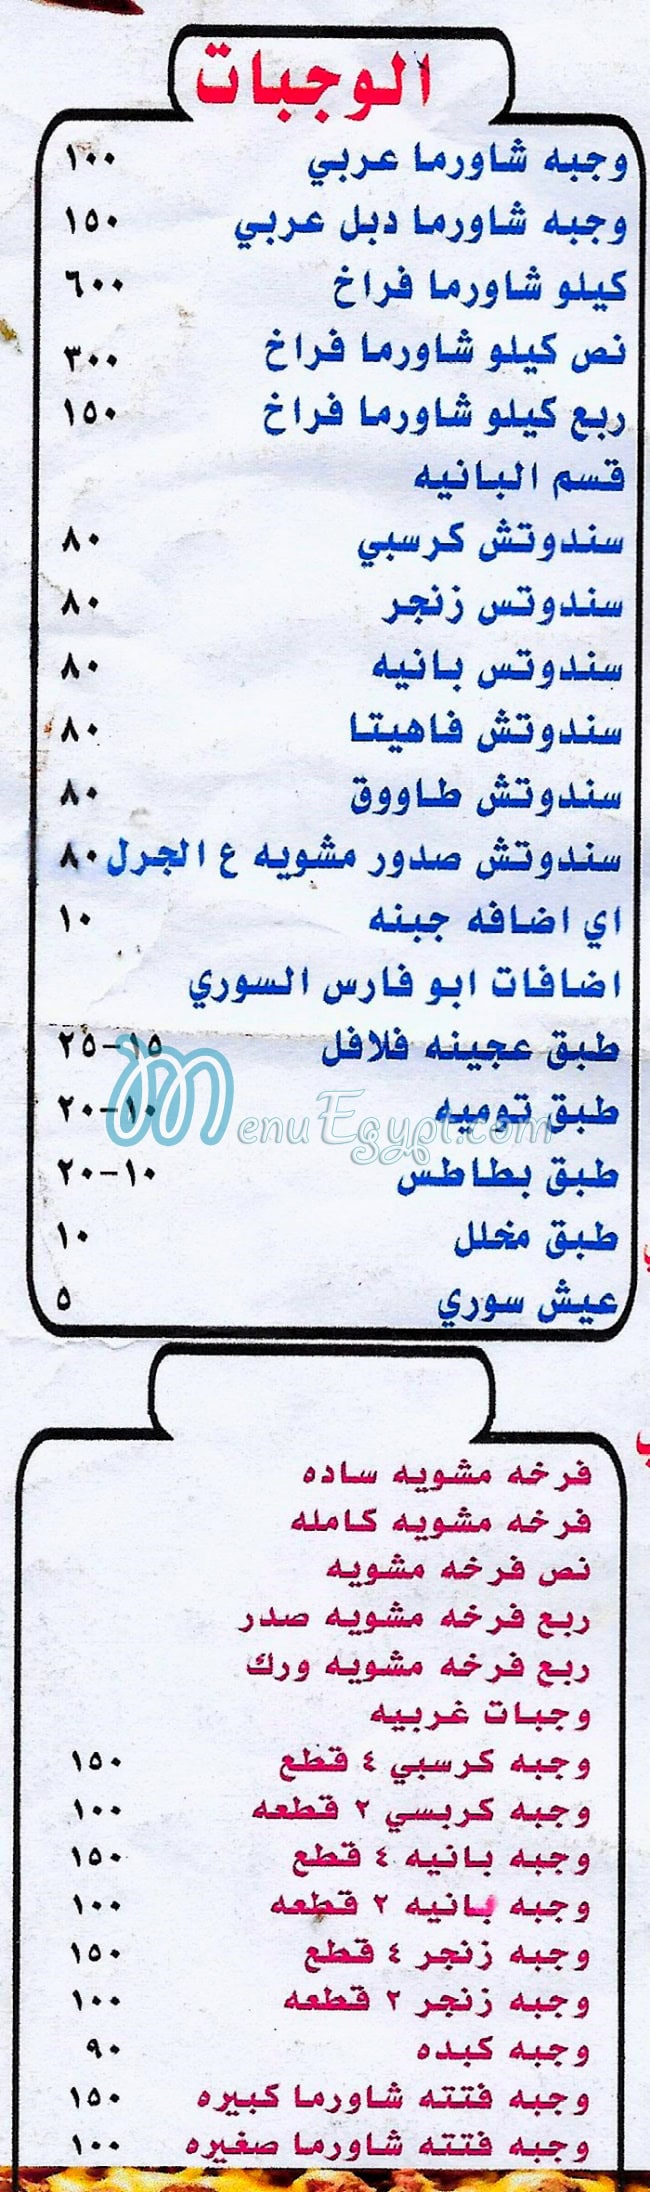 الوجبات
وجبه شاورما عربي ١٠٠
وجبه شاورما دبل عربي ١٥٠
كيلو شاورما فراخ ٦٠٠
نص كيلو شاورما فراخ ٣٠٠
ربع كيلو شاورما فراخ ١٥٠
قسم البانيه
سندوتش كرسبي ٨٠
سندوتس زنجر ٨٠
سندوتس بانيه ٨٠
سندوتش فاهيتا ٨٠
سندوتش طاووق ٨٠
سندوتش صدور مشويه ع الجرل ٨٠
اي اضافه جبنه ١٠
اضافات ابو فارس السوري
طبق عجينه فلافل ١٥-٢٥
طبق توميه ١٠-٢٠
MenuEgypt.com
طبق بطاطس ١٠-٢٠
طبق مخلل ١٠
عيش سوري ٥
فرخه مشويه ساده
فرخه مشويه كامله
نص فرخه مشويه
ربع فرخه مشويه صدر
ربع فرخه مشويه ورك
وجبات غربيه
وجبه كرسبي ٤ قطع ١٥٠
وجبه كربسي ٢ قطعه ١٠٠
وجبه بانيه ٤ قطع ١٥٠
وجبه بانيه ٢ قطعه ١٠٠
وجبه زنجر ٤ قطع ١٥٠
وجبه زنجر ٢ قطعه ١٠٠
وجبه كبده ٩٠
وجبه فتته شاورما كبيره ١٥٠
وجبه فتته شاورما صغيره ١٠٠